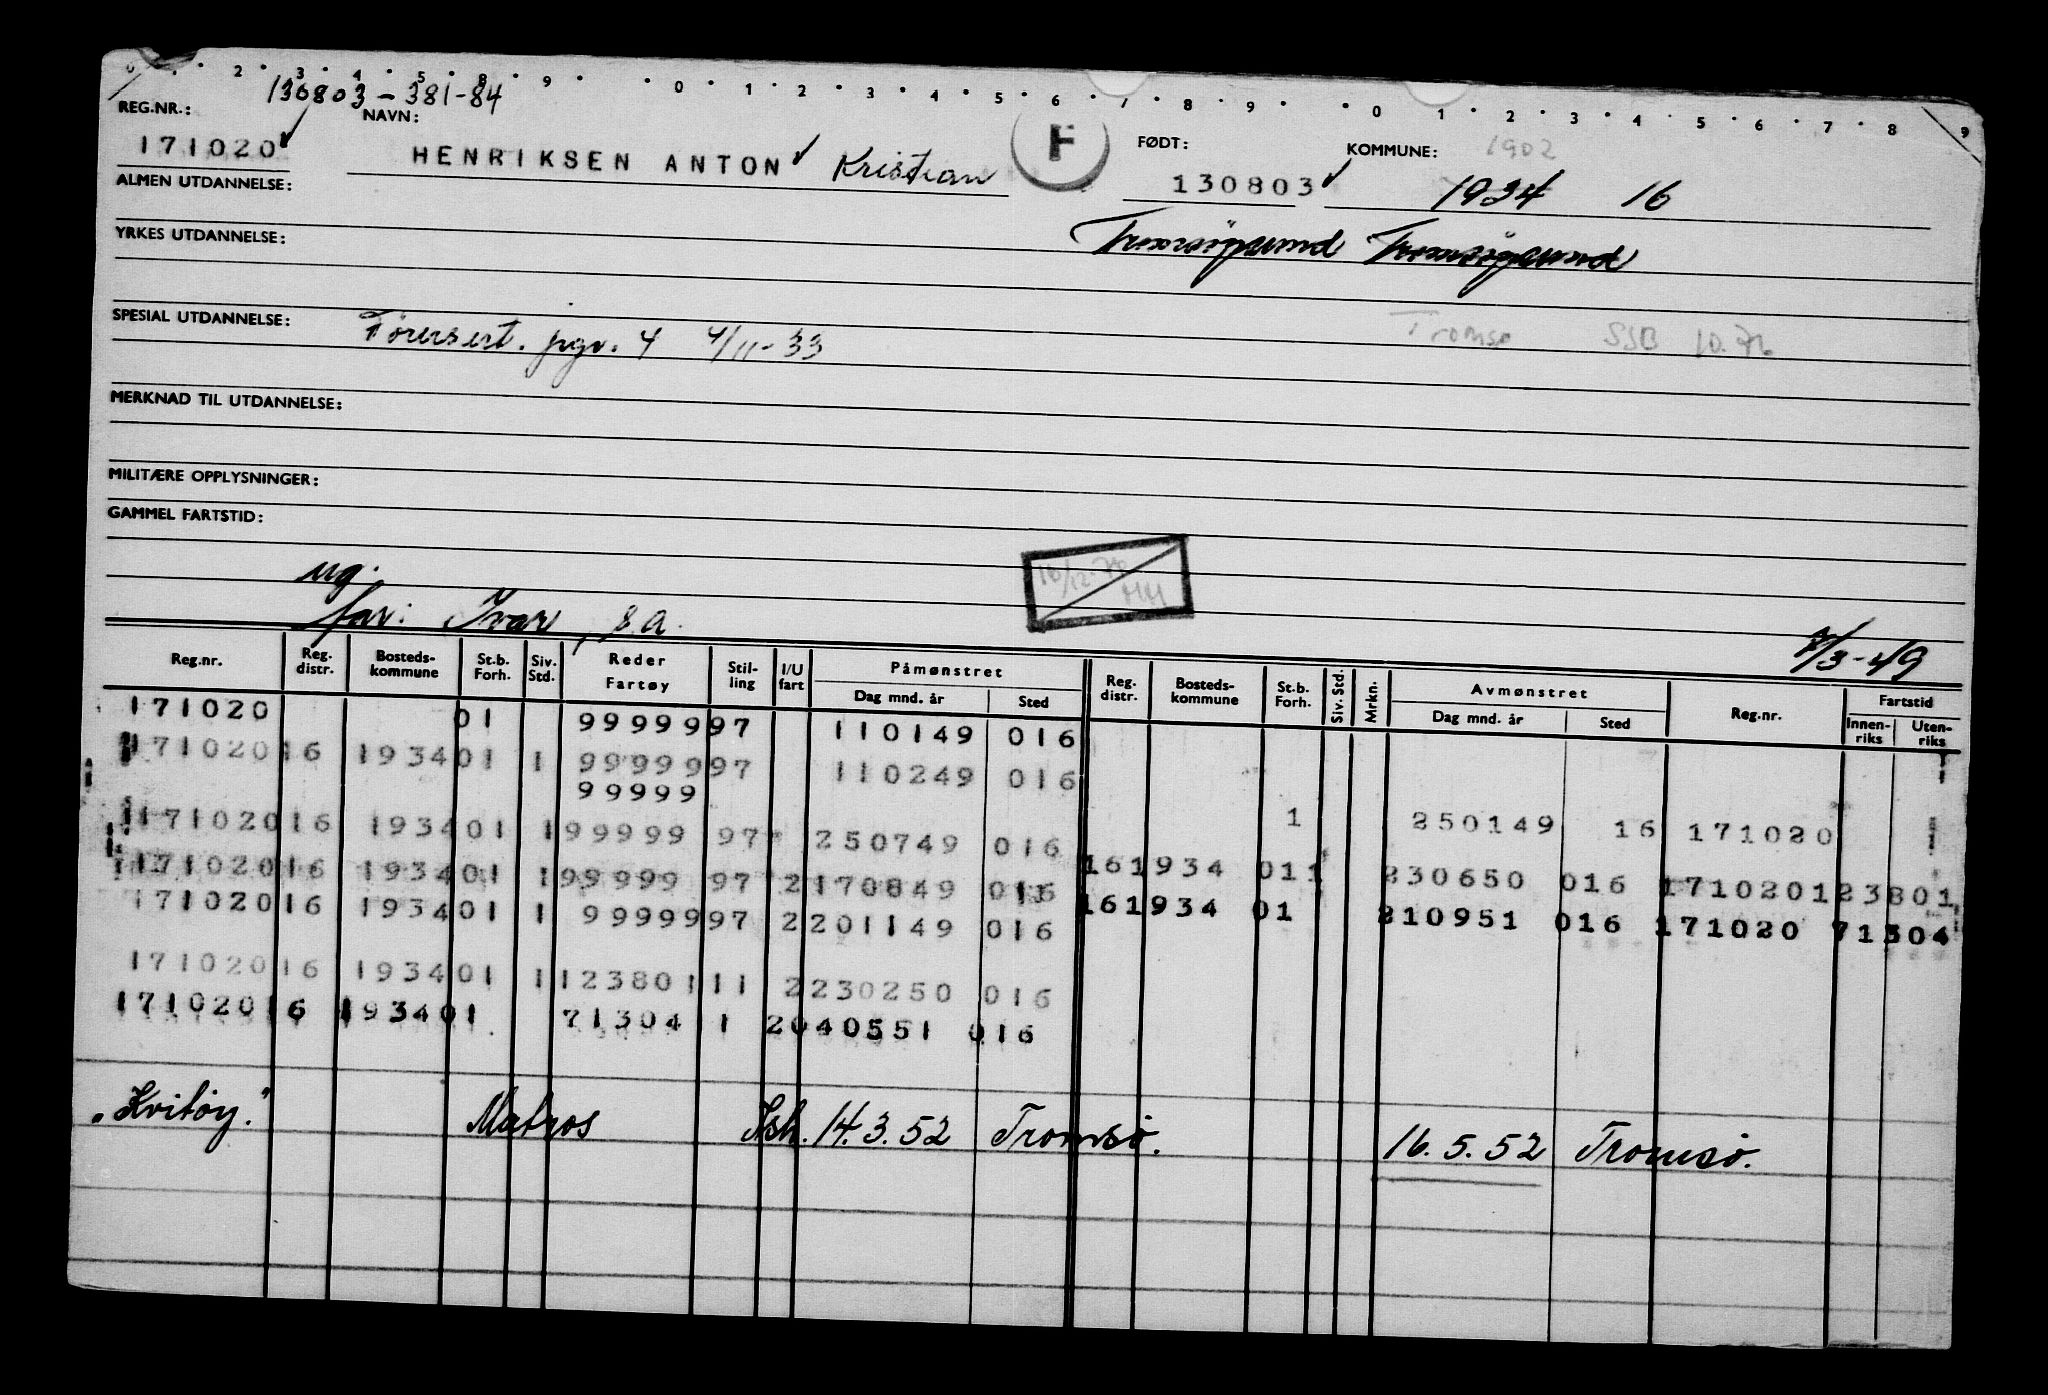 0 . . 2 . 3 . 4 . 5 . 8 . 9 . . 0 . 1 . 2 . 3 . 4 . 5 . 6 . 7 . 8 . 9 . . 0 . 1 . 2 . 3 . 4 . 5 . 6 . 7 . 8 . 9
130803-381-84
REG.NR.: NAVN: FØDT: KOMMUNE: 1902
171020 HENRIKSEN ANTON Kristian F 130803 1934 16
ALMEN UTDANNELSE:
Tromsöysund Tromsöysund
YRKES UTDANNELSE:
SPESIAL UTDANNELSE: Førersert. pgr. 4 4/11-33 Tromsø SSB 10.76
MERKNAD TIL UTDANNELSE:
MILITÆRE OPPLYSNINGER:
GAMMEL FARTSTID:
16/12-76 HH
ug.
far: Ivar, s.a. 7/3-49
Reg.nr. Reg. distr. Bosteds-kommune St.b. Forh. Siv. Std. Reder Fartøy Stil-ling I/U fart Påmønstret Dag mnd. år Sted Reg. distr. Bosteds-kommune St.b. Forh. Siv. Std. Mrkn. Avmønstret Dag mnd. år Sted Reg.nr. Fartstid Innen-riks Uten-riks
171020 01 99999 97 110149 016
171020 16 1934 01 1 99999 97 110249 016
99999
1 250149 16 171020
171020 16 1934 01 1 99999 97 250749 016
16 1934 01 1 230650 016 171020 123801
171020 16 1934 01 1 99999 97 2 170849 016
16 1934 01 210951 016 171020 71304
171020 16 1934 01 1 99999 97 2 201149 016
171020 16 1934 01 1 123801 11 2 230250 016
171020 16 1934 01 71304 1 2 040551 016
"Kvitøy." Matros Ish. 14.3.52 Tromsø. 16.5.52 Tromsø.